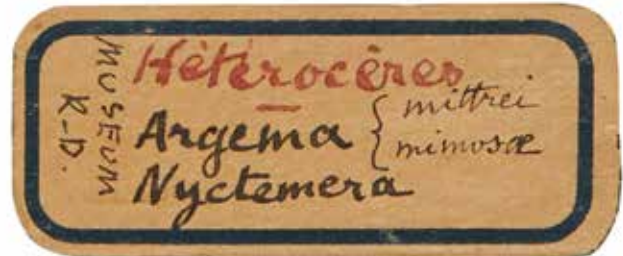 MUSEUM
K-D.
Hétérocères
Argema { mittrei
mimosæ
Nyctemera